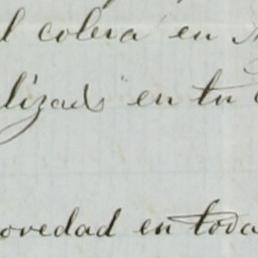 l colera en
lizado en tu
ovedad en toda